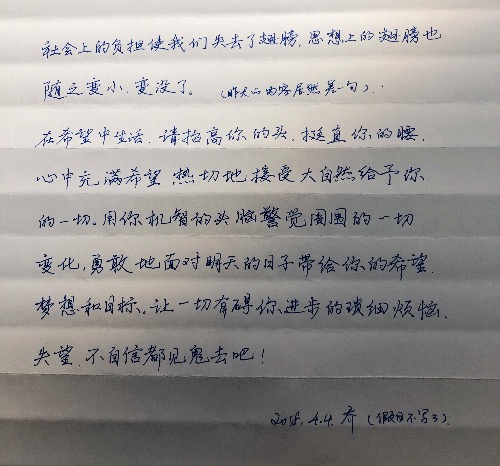 社会上的负担使我们失去了翅膀，思想上的翅膀也
随之变小，变没了。（昨天的内容居然差一句）．
在希望中生活，请抬高你的头，挺直你的腰，
心中充满希望，热切地接受大自然给予你
的一切。用你机智的头脑警觉周围的一切
变化，勇敢地面对明天的日子带给你的希望，
梦想和目标。让一切有碍你进步的琐细烦恼，
失望，不自信都见鬼去吧！
2018.4.4. 乔（假日不写了）